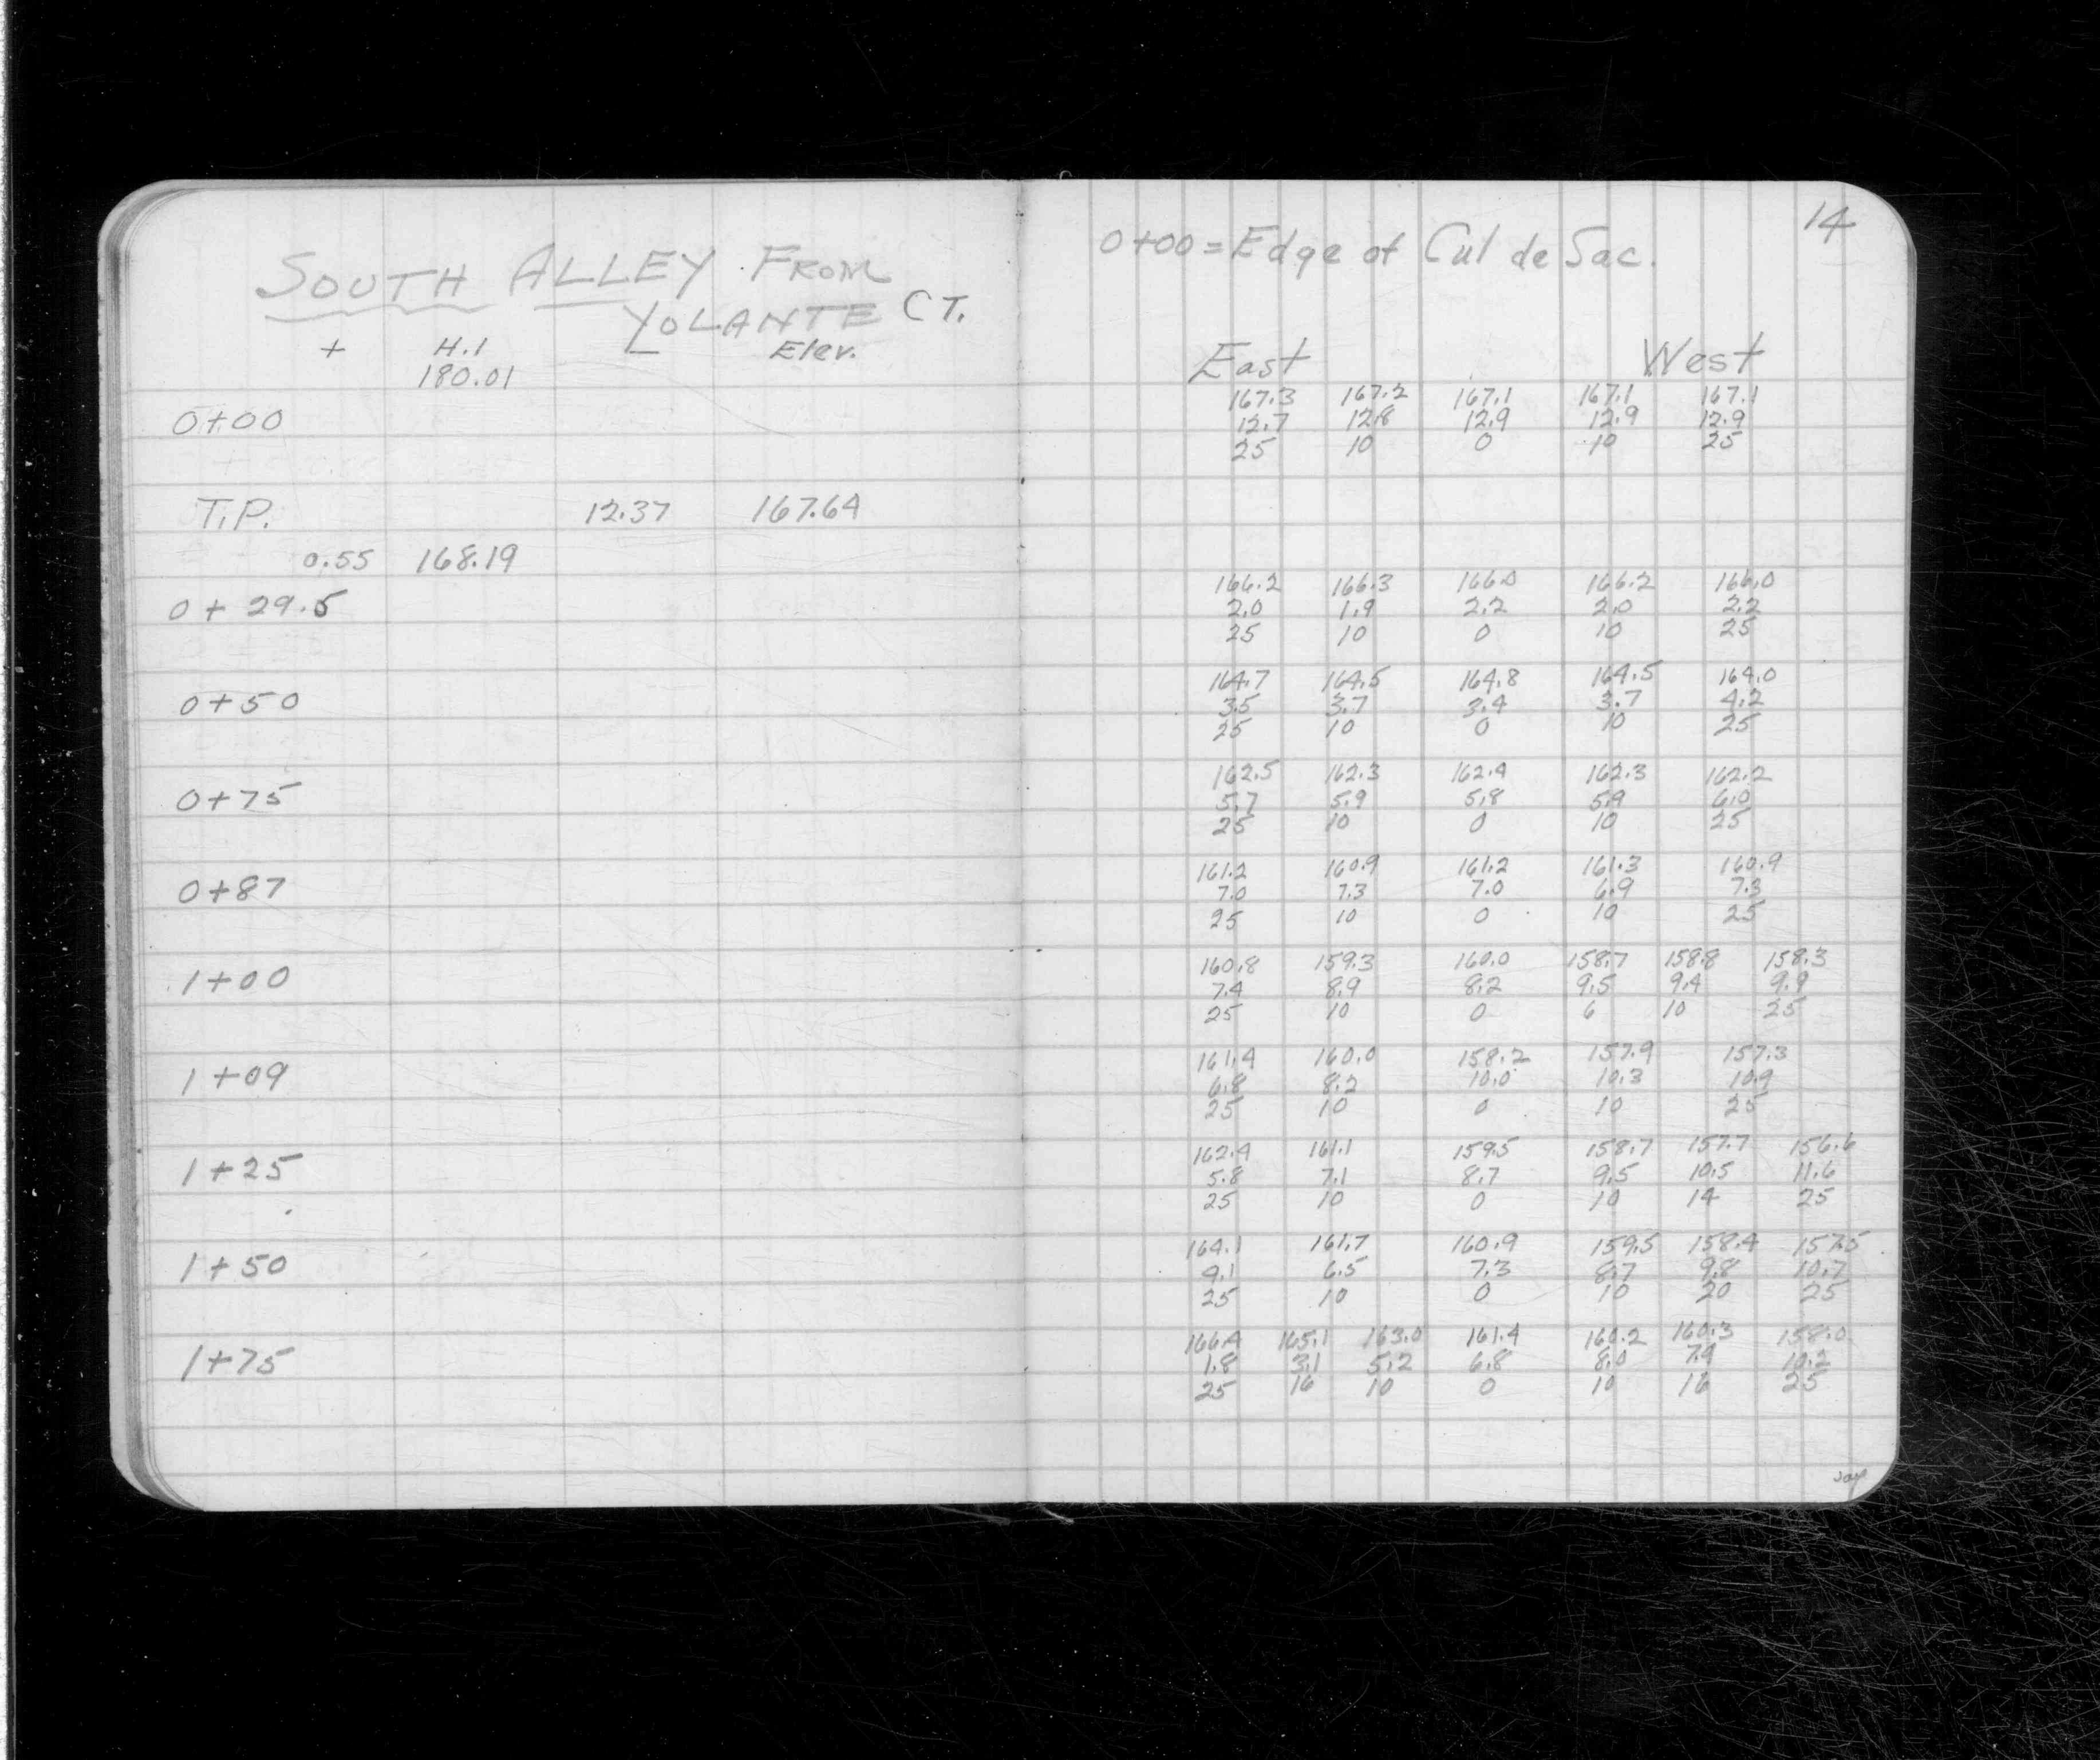 SOUTH ALLEY FROM
YOLANTE CT.
+ H.I Elev.
180.01
0+00
T.P. 12.37 167.64
0.55 168.19
0 + 29.5
0+50
0+75
0+87
1+00
1+09
1+25
1+50
1+75
14
0+00 = Edge of Cul de Sac.
East West
167.3 167.2 167.1 167.1 167.1
12.7 12.8 12.9 12.9 12.9
25 10 0 10 25
166.2 166.3 166.0 166.2 166.0
2.0 1.9 2.2 2.0 2.2
25 10 0 10 25
164.7 164.5 164.8 164.5 164.0
3.5 3.7 3.4 3.7 4.2
25 10 0 10 25
162.5 162.3 162.4 162.3 162.2
5.7 5.9 5.8 5.9 6.0
25 10 0 10 25
161.2 160.9 161.2 161.3 160.9
7.0 7.3 7.0 6.9 7.3
25 10 0 10 25
160.8 159.3 160.0 158.7 158.8 158.3
7.4 8.9 8.2 9.5 9.4 9.9
25 10 0 6 10 25
161.4 160.0 158.2 157.9 157.3
6.8 8.2 10.0 10.3 10.9
25 10 0 10 25
162.4 161.1 159.5 158.7 157.7 156.6
5.8 7.1 8.7 9.5 10.5 11.6
25 10 0 10 14 25
164.1 161.7 160.9 159.5 158.4 157.5
4.1 6.5 7.3 8.7 9.8 10.7
25 10 0 10 20 25
166.4 165.1 163.0 161.4 160.2 160.3 158.0
1.8 3.1 5.2 6.8 8.0 7.9 10.2
25 16 10 0 10 16 25